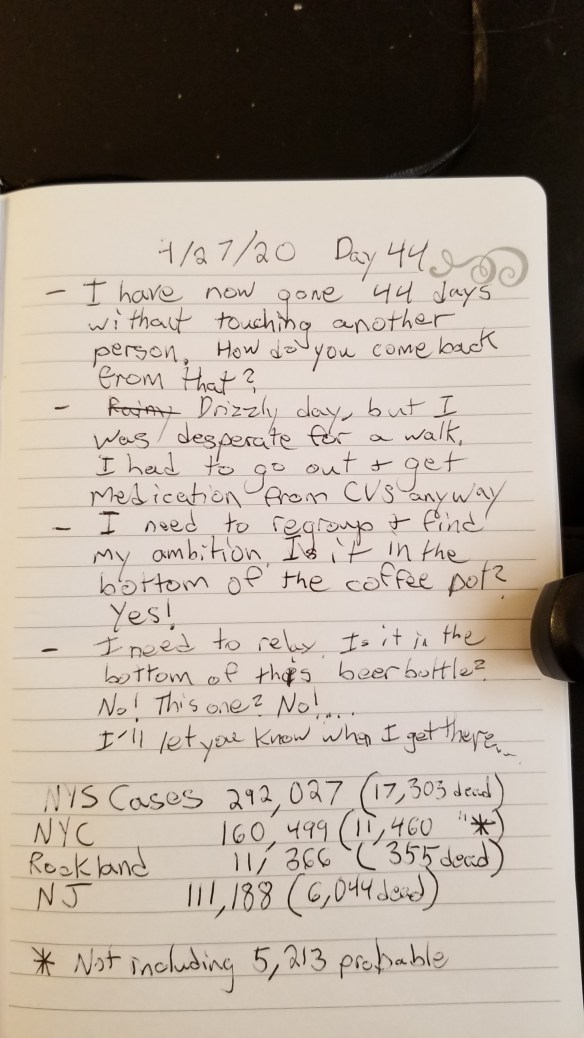 4/27/20 Day 44
- I have now gone 44 days
without touching another
person. How do you come back
from that?
- Rainy Drizzly day, but I
was desperate for a walk.
I had to go out & get
medication from CVS anyway
- I need to regroup & find
my ambition. Is it in the
bottom of the coffee pot?
Yes!
- I need to relax. Is it in the
bottom of this beer bottle?
No! This one? No!....
I'll let you know when I get there...
NYS Cases 292,027 (17,303 dead)
NYC 160,499 (11,460 " *)
Rockland 11,366 (355 dead)
NJ 111,188 (6,044 dead)
* Not including 5,213 probable